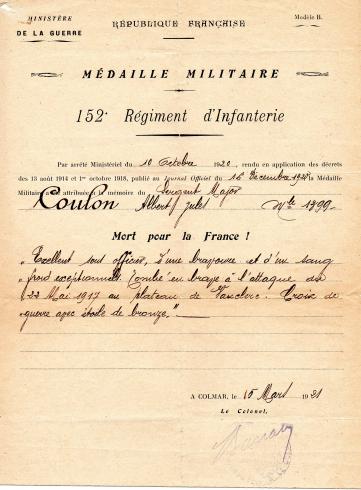 MINISTÈRE
DE LA GUERRE
RÉPUBLIQUE FRANÇAISE
Modèle B.
MÉDAILLE MILITAIRE
152e Régiment d'Infanterie
Par arrêté Ministériel du 10 Octobre 1920, rendu en application des décrets
des 13 août 1914 et 1er octobre 1918, publié au Journal Officiel du 16 Décembre 1920 la Médaille
Militaire a été attribuée à la mémoire du Sergent Major
Coulon Albert Jules Mle 1799
Mort pour la France !
"Excellent sous officier, d'une bravoure et d'un sang
froid exceptionnels. Tombé en brave à l'attaque du
22 Mai 1917 au plateau de Vauclerc. Croix de
guerre avec étoile de bronze."
A COLMAR, le 15 Mars 1921
Le Colonel,